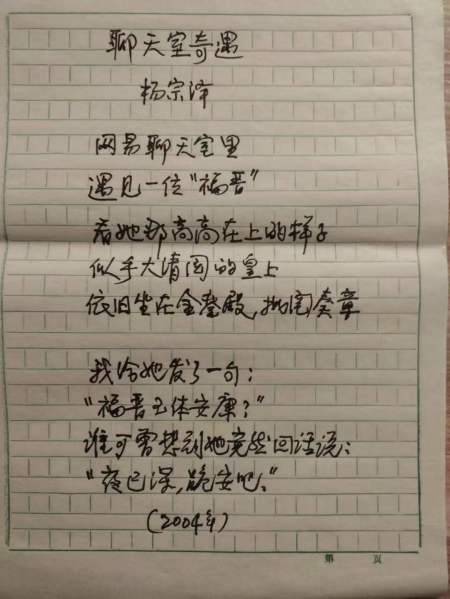 聊天室奇遇
杨宗泽
网易聊天室里
遇见一位“福晋”
看她那高高在上的样子
似乎大清国的皇上
依旧坐在金銮殿,批阅奏章
我给她发了一句:
“福晋玉体安康?”
谁可曾想到她竟然回话说:
“夜已深,跪安吧。”
(2004年)
第 页